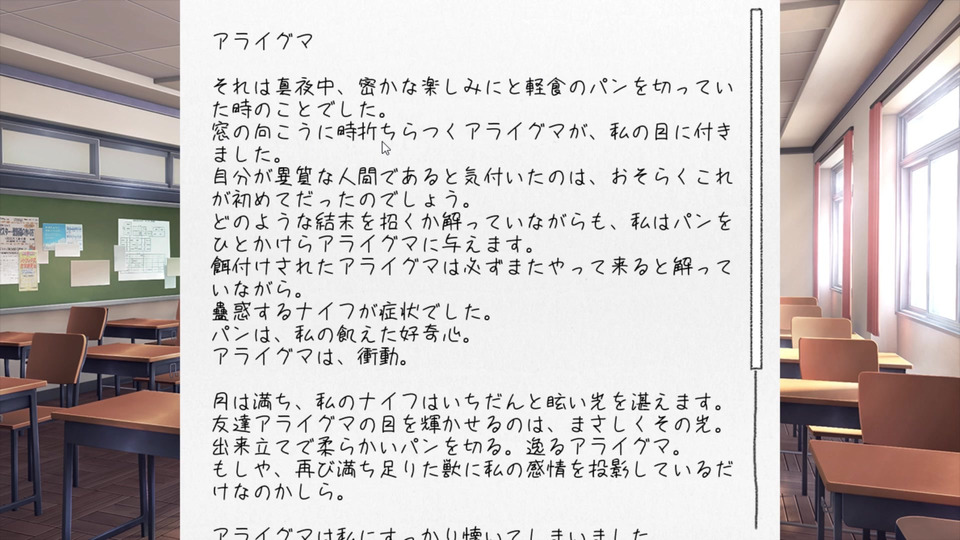 アライグマ
それは真夜中、密かな楽しみにと軽食のパンを切ってい
た時のことでした。
窓の向こうに時折ちらつくアライグマが、私の目に付き
ました。
自分が異質な人間であると気付いたのは、おそらくこれ
が初めてだったのでしょう。
どのような結末を招くか解っていながらも、私はパンを
ひとかけらアライグマに与えます。
餌付けされたアライグマは必ずまたやって来ると解って
いながら。
蠱惑するナイフが症状でした。
パンは、私の飢えた好奇心。
アライグマは、衝動。
月は満ち、私のナイフはいちだんと眩い光を湛えます。
友達アライグマの目を輝かせるのは、まさしくその光。
出来立てで柔らかいパンを切る。逸るアライグマ。
もしや、再び満ち足りた獣に私の感情を投影しているだ
けなのかしら。
アライグマは私にすっかり懐いてしまいました